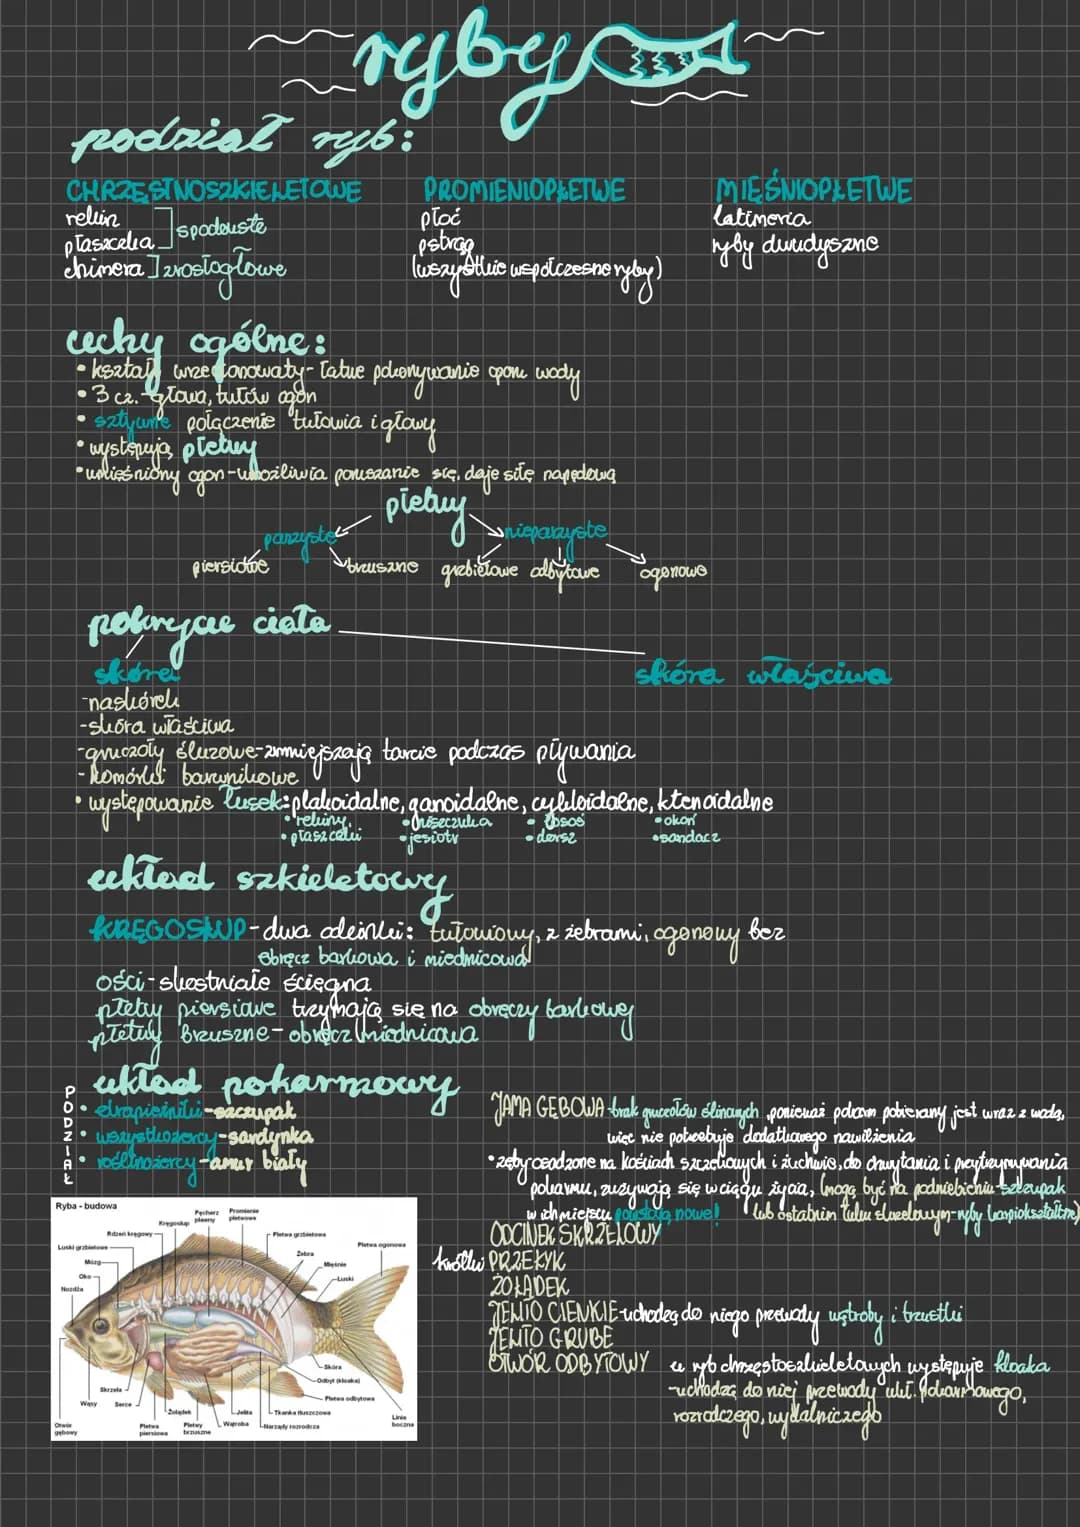 ryby
podział ryb:
CHRZĘSTNOSZKIELETOWE
rekin
płaszczka
spodouste
chimera
zrosłogłowe
PROMIENIOPŁETWE
płoć
pstrąg
(wszystkie współczesne ryby)
MIĘŚNIOPŁETWE
latimeria
ryby dwudyszne
cechy ogólne:
• kształt wrzecionowaty - łatwe pokonywanie oporu wody
• 3 cz. - głowa, tułów ogon
• sztywne połączenie tułowia i głowy
• występują płetwy
• umięśniony ogon - umożliwia poruszanie się, daje siłę napędową
płetwy
parzyste
nieparzyste
piersiowe
brzuszne
grzbietowe
odbytowe
ogonowe
pokrycie ciała
skóra
skóra właściwa
- naskórek
- skóra właściwa
- gruczoły śluzowe - zmniejszają tarcie podczas pływania
- komórki barwnikowe
• występowanie łusek: plakoidalne, ganoidalne, cykloidalne, ktenoidalne
• rekiny,
• płaszczki
• niszczuka
• jesiotr
• łosoś
• dorsz
• okoń
• sandacz
układ szkieletowy
KRĘGOSŁUP - dwa odcinki: tułowiowy, z żebrami, ogonowy bez
obręcz barkowa i miednicowa
ości - skostniałe ścięgna
płetwy piersiowe trzymają się na obręczy barkowej
płetwy brzuszne - obręcz miednicowa
układ pokarmowy
PODZIAŁ
• drapieżniki - szczupak
• wszystkożercy - sardynka
• roślinożercy - amur biały
JAMA GĘBOWA - brak gruczołów ślinowych, ponieważ pokarm pobierany jest wraz z wodą,
więc nie potrzebuje dodatkowego nawilżenia
• zęby osadzone na kościach szczękowych i żuchwie, do chwytania i przytrzymywania
pokarmu, zużywają się w ciągu życia, (mogą być na podniebieniu - szczupak
w ich miejscu powstają nowe! lub ostatnim łuku skrzelowym - ryby karpiokształtne)
ODCINEK SKRZELOWY
krótki PRZEŁYK
ŻOŁĄDEK
JELITO CIENKIE - uchodzą do niego przewody wątroby i trzustki
JELITO GRUBE
OTWÓR ODBYTOWY
u ryb chrzęstoszkieletowych występuje kloaka
- uchodzą do niej przewody ukł. pokarmowego,
rozrodczego, wydalniczego
Ryba - budowa
Łuski grzbietowe
Rdzeń kręgowy
Kręgosłup
Pęcherz pławny
Promienie płetwowe
Płetwa grzbietowa
Żebra
Mięśnie
Łuski
Płetwa ogonowa
Mózg
Oko
Nozdża
Otwór gębowy
Wąsy
Skrzela
Serce
Płetwa piersiowa
Żołądek
Płetwy brzuszne
Wątroba
Jelita
Narządy rozrodcza
Tkanka tłuszczowa
Płetwa odbytowa
Odbyt (kloaka)
Skóra
Linia boczna